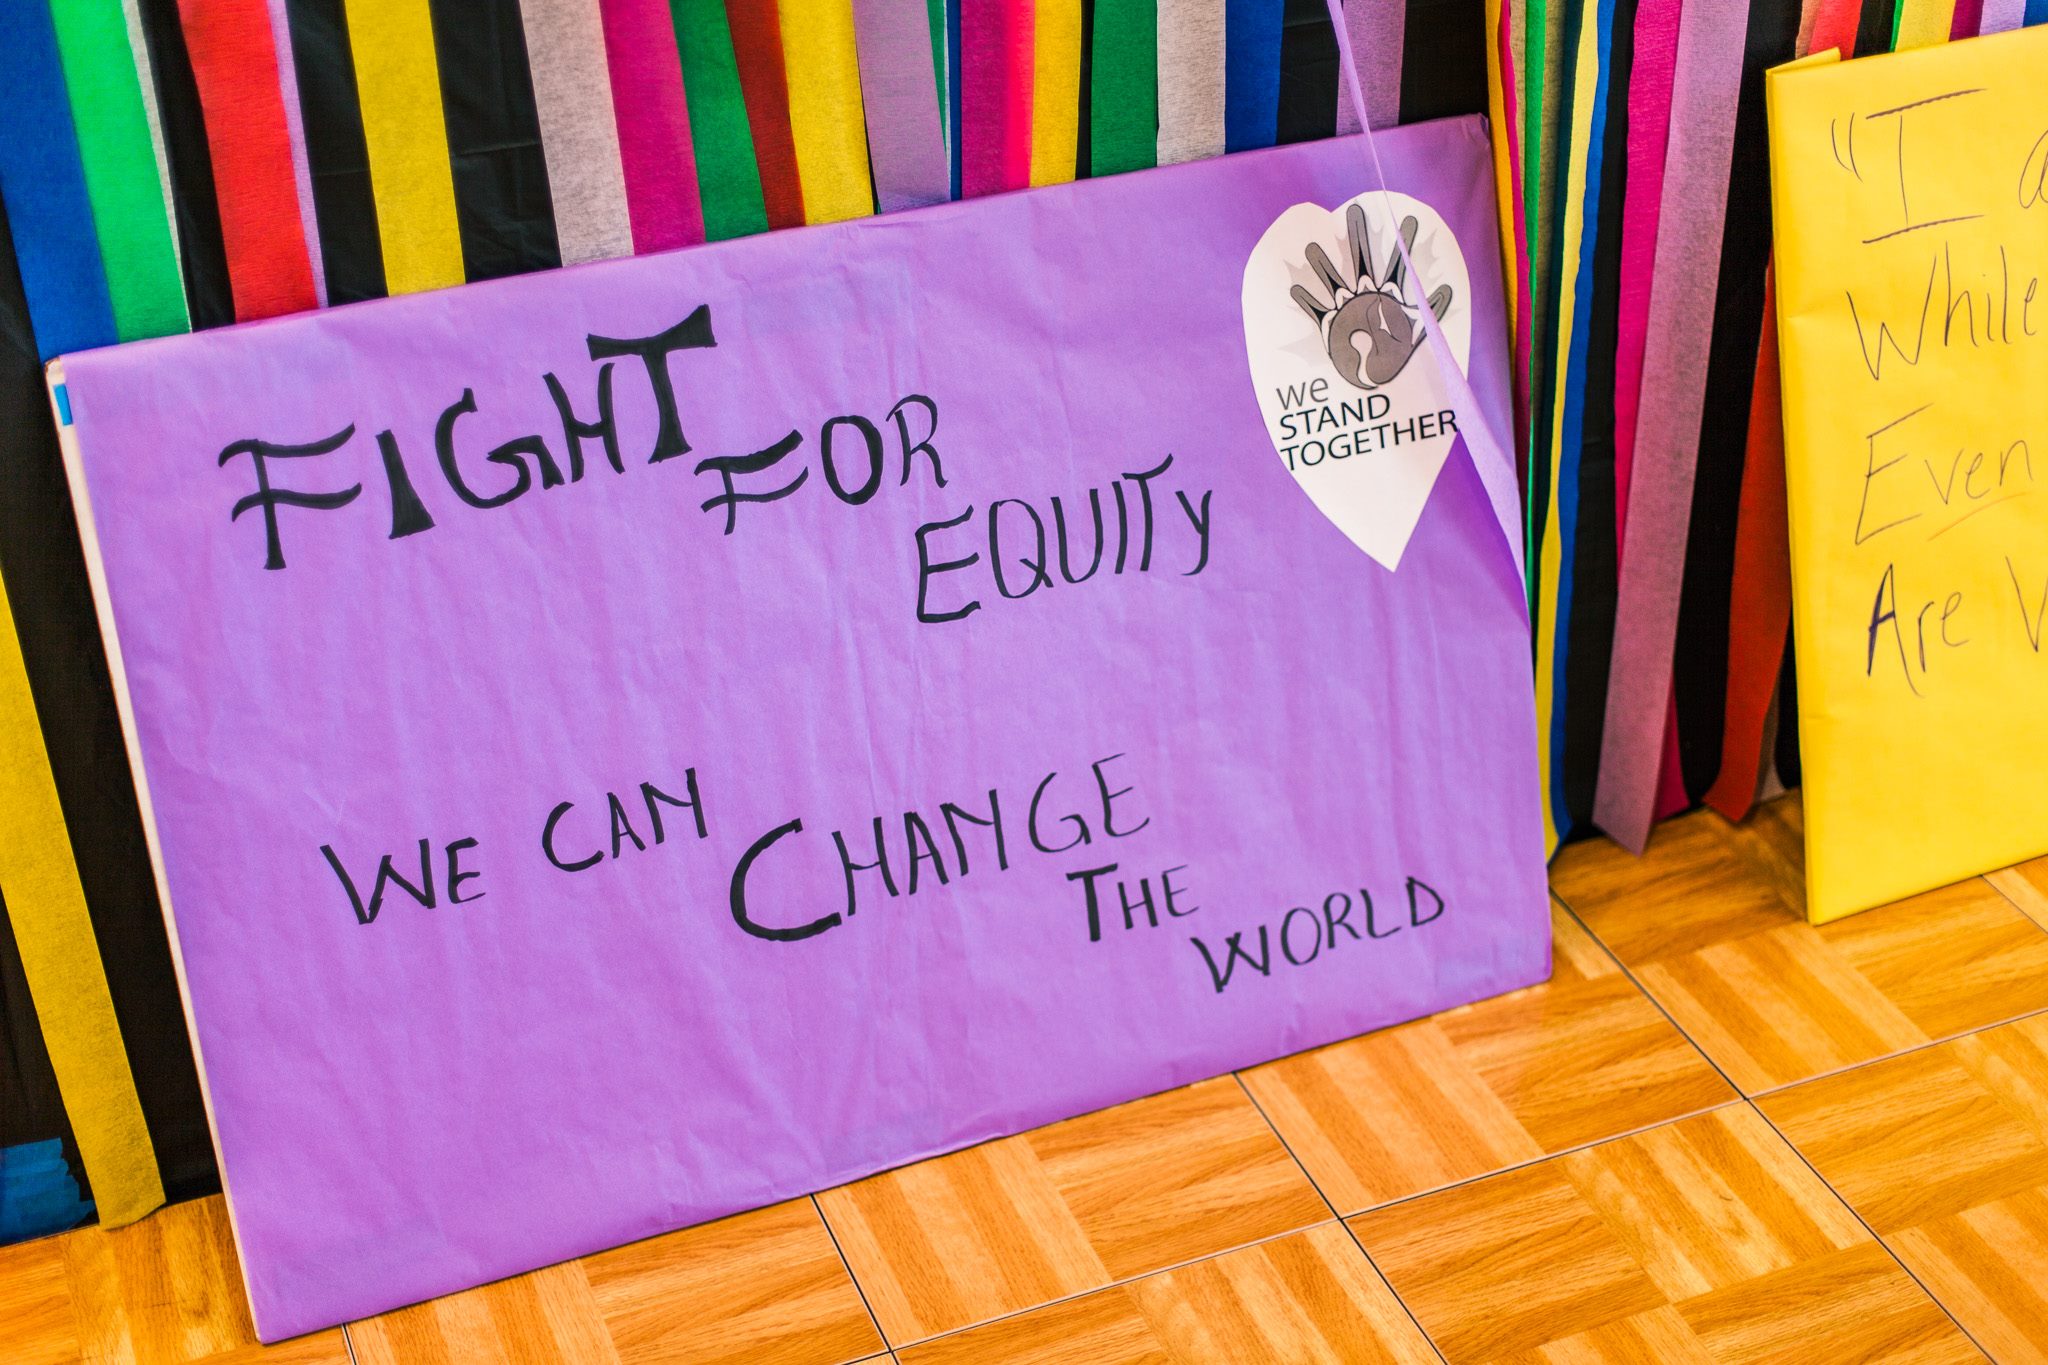 FIGHT FOR
EQUITY
WE CAN CHANGE
THE
WORLD
we
STAND
TOGETHER
"I
While
Even
Are